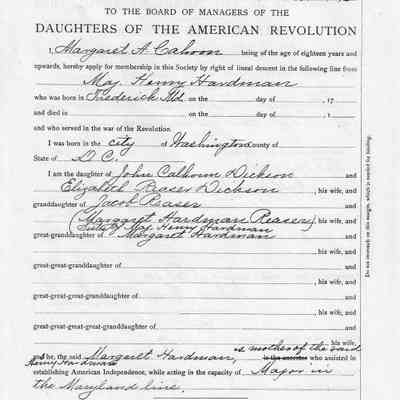 TO THE BOARD OF MANAGERS OF THE
DAUGHTERS OF THE AMERICAN REVOLUTION
I, Margaret A. Calhoon being of the age of eighteen years and
upwards, hereby apply for membership in this Society by right of lineal descent in the following line from
Maj. Henry Hardman
who was born in Frederick Md. on the day of , 17
and died in on the day of , 1
and who served in the war of the Revolution.
I was born in the city of Washington county of
State of D.C.
I am the daughter of John Calhoun Dickson and
Elizabeth Reaser Dickson , his wife, and
granddaughter of Jacob Reaser and
(Margaret Hardman Reaser) his wife, and
Sister Maj. Henry Hardman
great-granddaughter of Margaret Hardman and
, his wife, and
great-great-granddaughter of and
, his wife, and
great-great-great-granddaughter of and
, his wife, and
great-great-great-great-granddaughter of and
, his wife, and
is mother of the said
and he, the said Margaret Hardman, is the ancestor who assisted in
Henry Hardman
establishing American Independence, while acting in the capacity of Major in
the Maryland line.
Do not encroach on this margin, which is needed for binding.